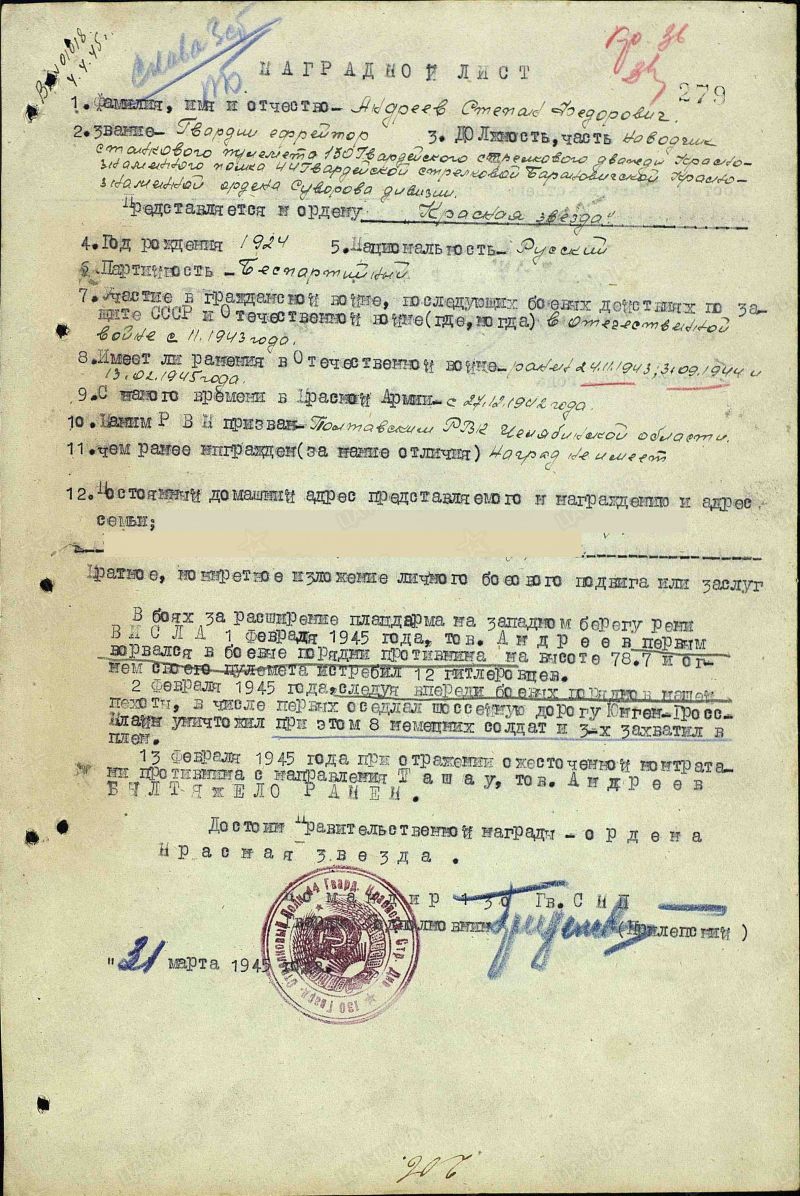 Вх N 01018
4.4.45г.
Слава 3сб
Пр. 36
279
НАГРАДНОЙ ЛИСТ
1. Фамилия, имя и отчество- Андреев Степан Федорович.
2. Звание- Гвардии ефрейтор 3. Должность, часть наводчик
станкового пулемета 130 Гвардейского стрелкового дважды Красно-
знаменного полка 44 Гвардейской стрелковой Барановичской Красно-
знаменной ордена Суворова дивизии.
Представляется к ордену "Красная звезда"
4. Год рождения 1924 5. Национальность- Русский
6. Партийность - Беспартийный
7. Участие в гражданской войне, последующих боевых действиях по за-
щите СССР и Отечественной войне(где, когда) в отечественной
войне с 11.1943 года.
8. Имеет ли ранения в Отечественной войне- ранен 24.11.1943; 31.09.1944 и
13.02.1945 года.
9. С какого времени в Красной Армии- с 27.12.1942 года.
10. Каким Р В К призван- Полтавским РВК Челябинской области.
11. чем ранее нпгражден(за какие отличия) наград не имеет
12. Постоянный домашний адрес представляемого к награждению и адрес
семьи;
Краткое, конкретное изложение личного боевого подвига или заслуг
В боях за расширение плацдарма на западном берегу реки
В И С Л А 1 февраля 1945 года, тов. А н д р е е в первым
ворвался в боевые порядки противника на высоте 78.7 и ог-
нем своего пулемета истребил 12 гитлеровцев.
2 Февраля 1945 года, следуя впереди боевых порядков нашей
пехоты, в числе первых оседлал шоссейную дорогу Юнген-Гросс-
Клайн уничтожил при этом 8 немецких солдат и 3-х захватил в
плен.
13 Февраля 1945 года при отражении ожесточенной контрата-
ки противника с направления Т а ш а у, тов. А н д р е е в
Б Ы Л Т Я Ж Е Л О Р А Н Е Н .
Достоин Правительственной награды - о р д е н а
К р а с н а я З в е з д а .
130 Гв. С К П
подполковник (Прилепский )
" 31 марта 1945 года.
206.